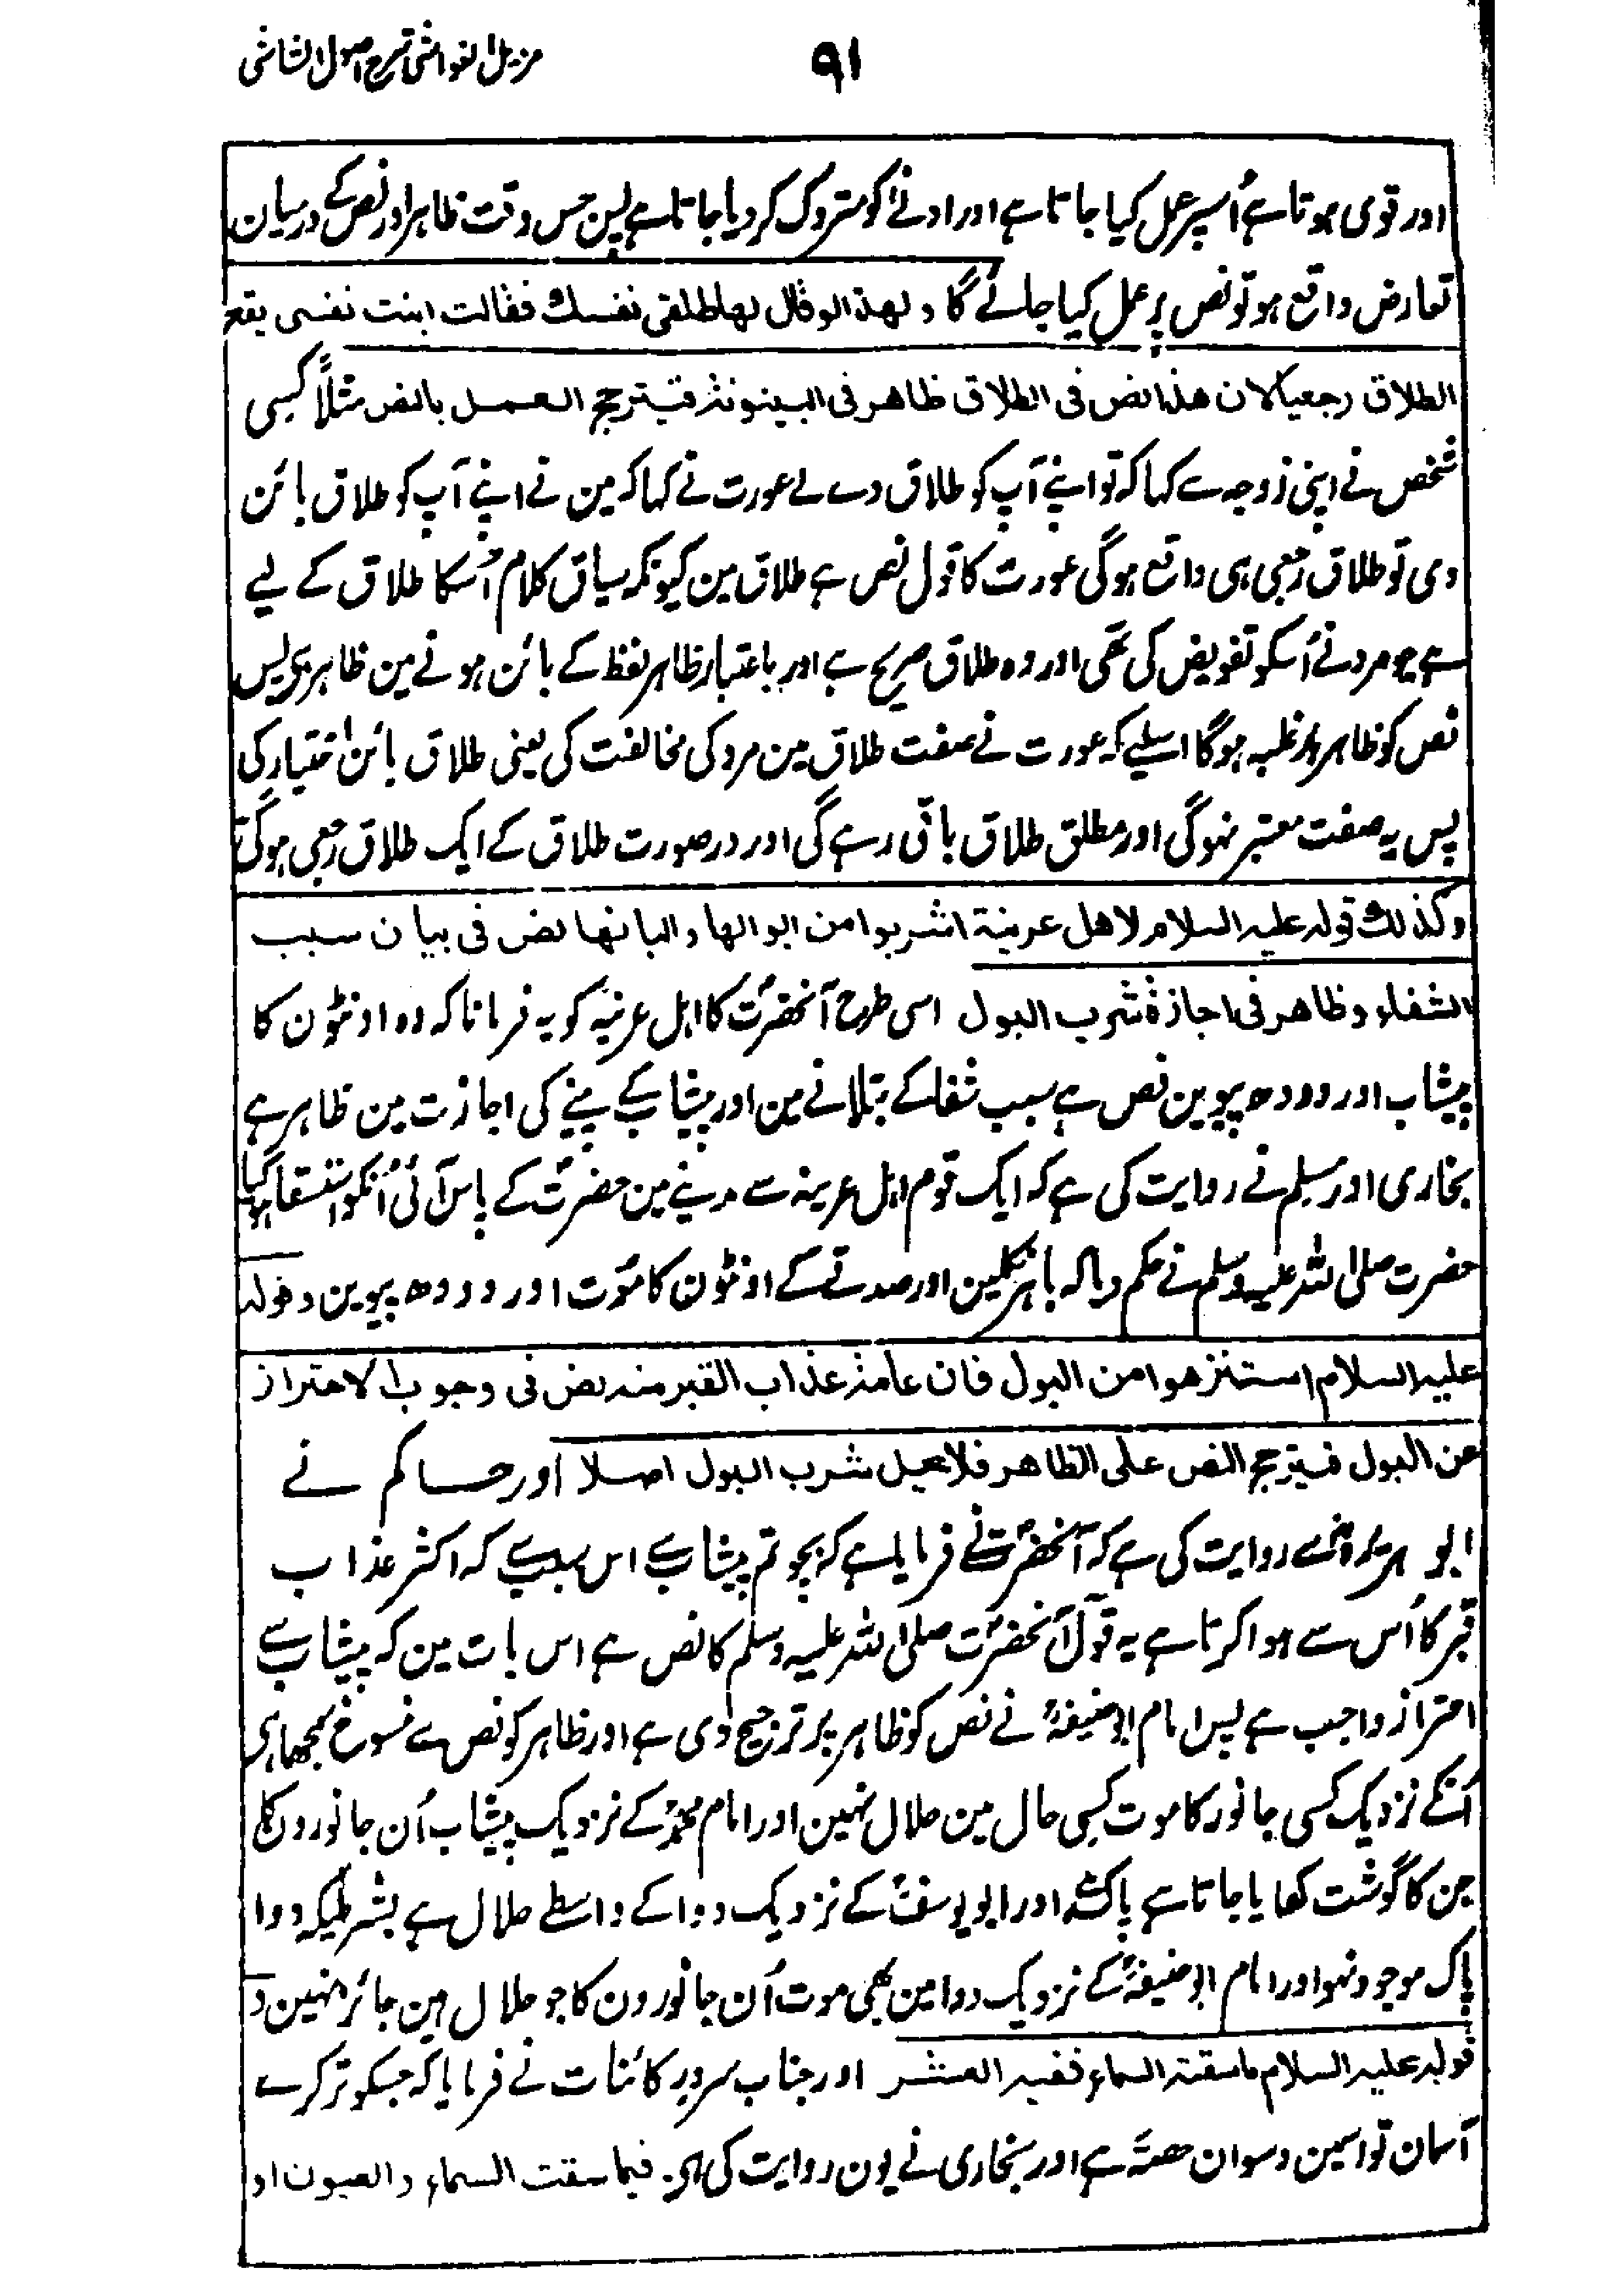 ۹۱
مزیل الغواشی شرح اصول الشاشی
اور قوی ہوتا ہے اُسپر عمل کیا جاتا ہے اور ادنےٰ کو متروک کر دیا جاتا ہے پس جس وقت ظاہر اور نص کے درمیان
تعارض واقع ہو تو نص پر عمل کیا جائے گا ولهذا لو قال لها طلقی نفسك فقالت ابنت نفسی یقع
الطلاق رجعیا لان هذا نص فی الطلاق ظاهر فی البینونة فیترجح العمل بالنص مثلاً کسی
شخص نے اپنی زوجہ سے کہا کہ تو اپنے آپ کو طلاق دے لے عورت نے کہا کہ مین نے اپنے آپ کو طلاق بائن
دی تو طلاق رجعی ہی واقع ہوگی عورت کا قول نص ہے طلاق مین کیونکہ سیاق کلام اُسکا طلاق کے لیے
ہے جو مرد نے اُسکو تفویض کی تھی اور وہ طلاق صریح ہے اور باعتبار ظاہر لفظ کے بائن ہونے مین ظاہر ہی پس
نص کو ظاہر پر غلبہ ہوگا اسلیے کہ عورت نے صفت طلاق مین مرد کی مخالفت کی یعنی طلاق بائن اختیار کی
پس یہ صفت معتبر نہوگی اور مطلق طلاق باقی رہے گی اور در صورت طلاق کے ایک طلاق رجعی ہوگی
وکذلك قوله علیه السلام لاهل عرینة اشربوا من ابوالها والبانها نص فی بیان سبب
الشفاء وظاهر فی اجازة شرب البول اسی طرح آنحضرتؐ کا اہل عرینہ کو یہ فرمانا کہ وہ اونٹون کا
پیشاب اور دودھ پیوین نص ہے سبب شفا کے بتلانے مین اور پیشاب کے پینے کی اجازت مین ظاہر ہے
بخاری اور مسلم نے روایت کی ہے کہ ایک قوم اہل عرینہ سے مدینے مین حضرتؐ کے پاس آئی اُنکو استسقا ہوگیا
حضرت صلی اللہ علیہ وسلم نے حکم دیا کہ باہر نکلین اور صدقے کے اونٹون کا مُوت اور دودھ پیوین وقوله
علیه السلام استنزهوا من البول فان عامة عذاب القبر منه نص فی وجوب الاحتراز
عن البول فیترجح النص علی الظاهر فلا یحل شرب البول اصلا اور حاکم نے
ابو ہریرہؓ سے روایت کی ہے کہ آنحضرتؐ نے فرمایا ہے کہ بچو تم پیشاب سے اس سبب سے کہ اکثر عذاب
قبر کا اُس سے ہوا کرتا ہے یہ قول آنحضرت صلی اللہ علیہ وسلم کا نص ہے اس بات مین کہ پیشاب سے
احتراز واجب ہے پس امام ابوحنیفہؒ نے نص کو ظاہر پر ترجیح دی ہے اور ظاہر کو نص سے منسوخ سمجھا ہی
اُنکے نزدیک کسی جانور کا موت کسی حال مین حلال نہین اور امام محمدؒ کے نزدیک پیشاب اُن جانورون کا
جن کا گوشت کھایا جاتا ہے پاک ہے اور ابو یوسفؒ کے نزدیک دوا کے واسطے حلال ہے بشرطیکہ دوا
پاک موجود نہو اور امام ابوحنیفہؒ کے نزدیک دوا مین بھی موت اُن جانورون کا جو حلال ہین جائز نہین و
قوله علیه السلام ما سقته السماء ففیه العشر اور جناب سرور کائنات نے فرمایا کہ جسکو تر کرے
آسمان تو اسمین دسوان حصّہ ہے اور بخاری نے یون روایت کی ہی فیما سقت السماء والعیون او